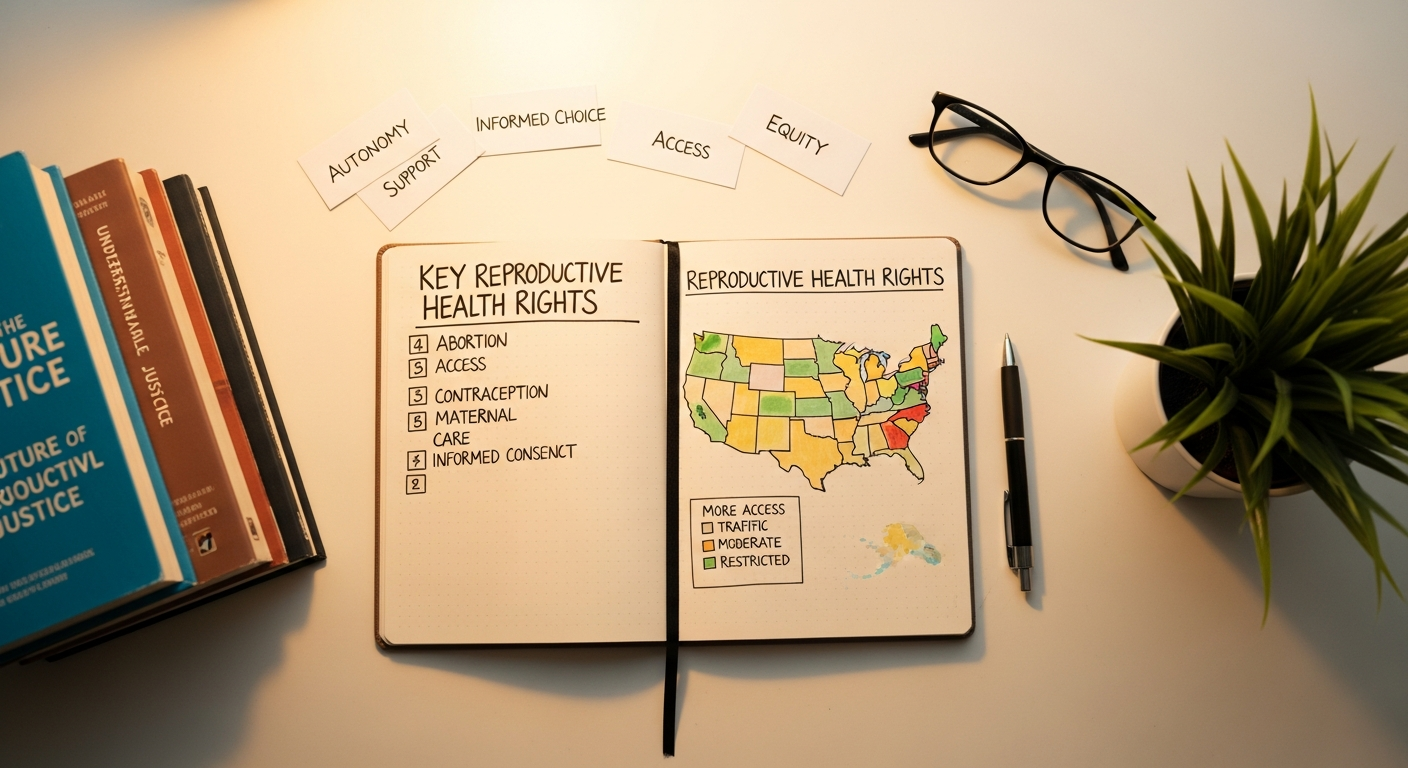 AUTONOMY
SUPPORT
INFORMED CHOICE
ACCESS
EQUITY
THE
URE
TICE
UTURE OF
JUSTICE
JUSTICE
KEY REPRODUCTIVE
HEALTH RIGHTS
4 ABORTION
5 ACCESS
5 CONTRACEPTION
5 MATERNAL
CARE
INFORMED CONSENCT
2
REPRODUCTIVE HEALTH RIGHTS
MORE ACCESS
TRAFIFIC
MODERATE
RESTRICTED